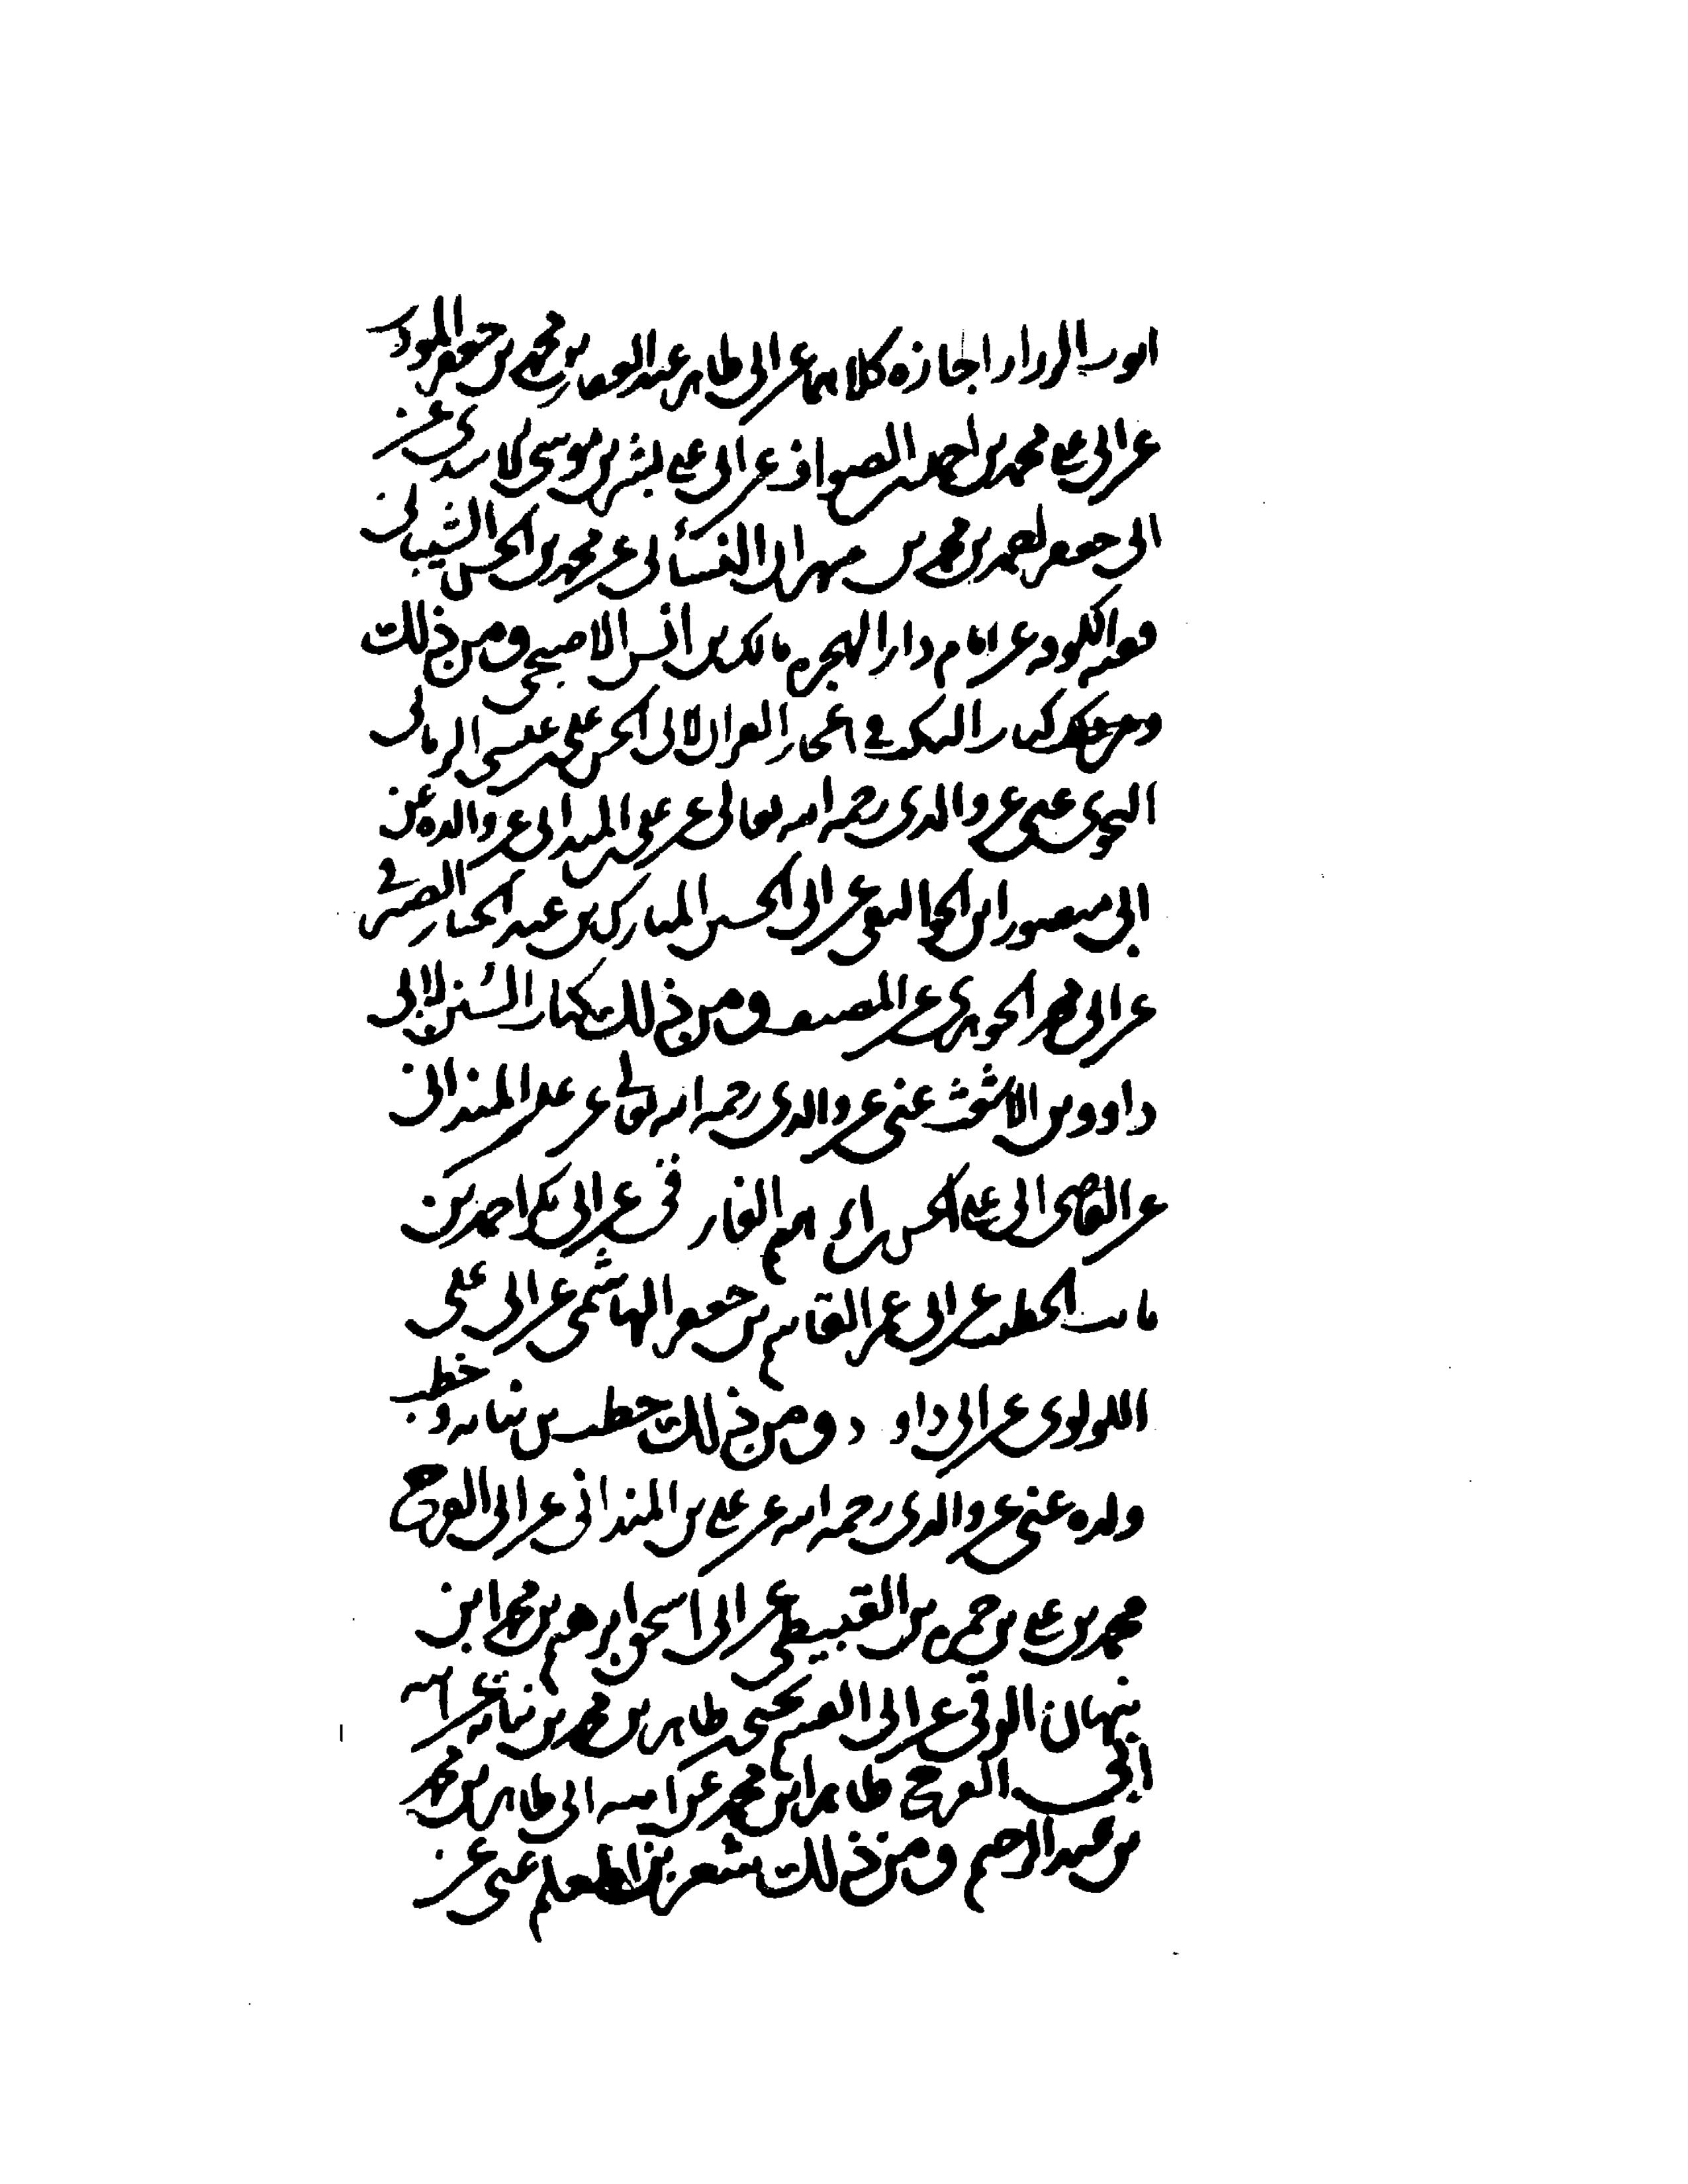 ايوب البزاز اجازه كلاهما عن ابى طاهر عبد الغفار بن محمد بن جعفر المودب
عن ابى على محمد بن احمد الصواف عن ابى على بشر بن موسى الاسدى عن
ابى جعفر احمد بن محمد بن مهران النسائى عن محمد بن الحسن الشيبانى
فقيه الكوفه عن امام دار الهجره مالك بن انس الاصبحى ومن ذلك
كتاب النكت فى اعجاز القران لابى الحسن على بن عيسى الرمانى
النحوى عنى عن والدى رحمه الله تعالى عن على المندائى عن والده عن
ابى منصور ابن الجواليقى عن ابى الحسن المبارك بن عبد الجبار الصيرفى
عن ابى محمد الجوهرى عن المصنف ومن ذلك كتاب السنن لابى
داوود بن الاشعث عنى عن والدى رحمه الله تعالى عن على المندائى
عن القاضى ابى على الحسن بن ابراهيم الفارقى عن ابى بكر احمد بن
ثابت الخطيب عن ابى عمر القاسم بن جعفر الهاشمى عن ابى على
اللولوى عن ابى داود ومن ذلك خطب بن نباته وخطب
ولده عنى عن والدى رحمه الله عن على بن المندائى عن ابى الفرج
محمد بن على بن حمزه بن القبيطى عن ابى اسحق ابرهيم بن محمد ابن
نبهان الرقى عن ابى القسم يحيى بن طاهر بن محمد بن نباته عن ابيه
ابى الفرج طاهر ابن محمد عن ابيه ابى طاهر بن محمد
بن عبد الرحيم ومن ذلك شعر بن المعلم عنى عن